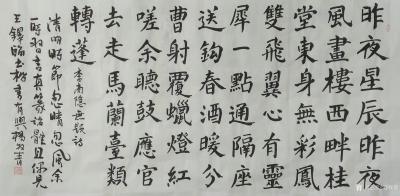 昨夜星辰昨夜
風畫樓西畔桂
堂東身無彩鳳
雙飛翼心有靈
犀一點通隔座
送鈎春酒暖分
曹射覆蠟燈紅
嗟余聽鼓應官
去走馬蘭臺類
轉蓬 李商隱無題詩
清明時節忽晴忽風余